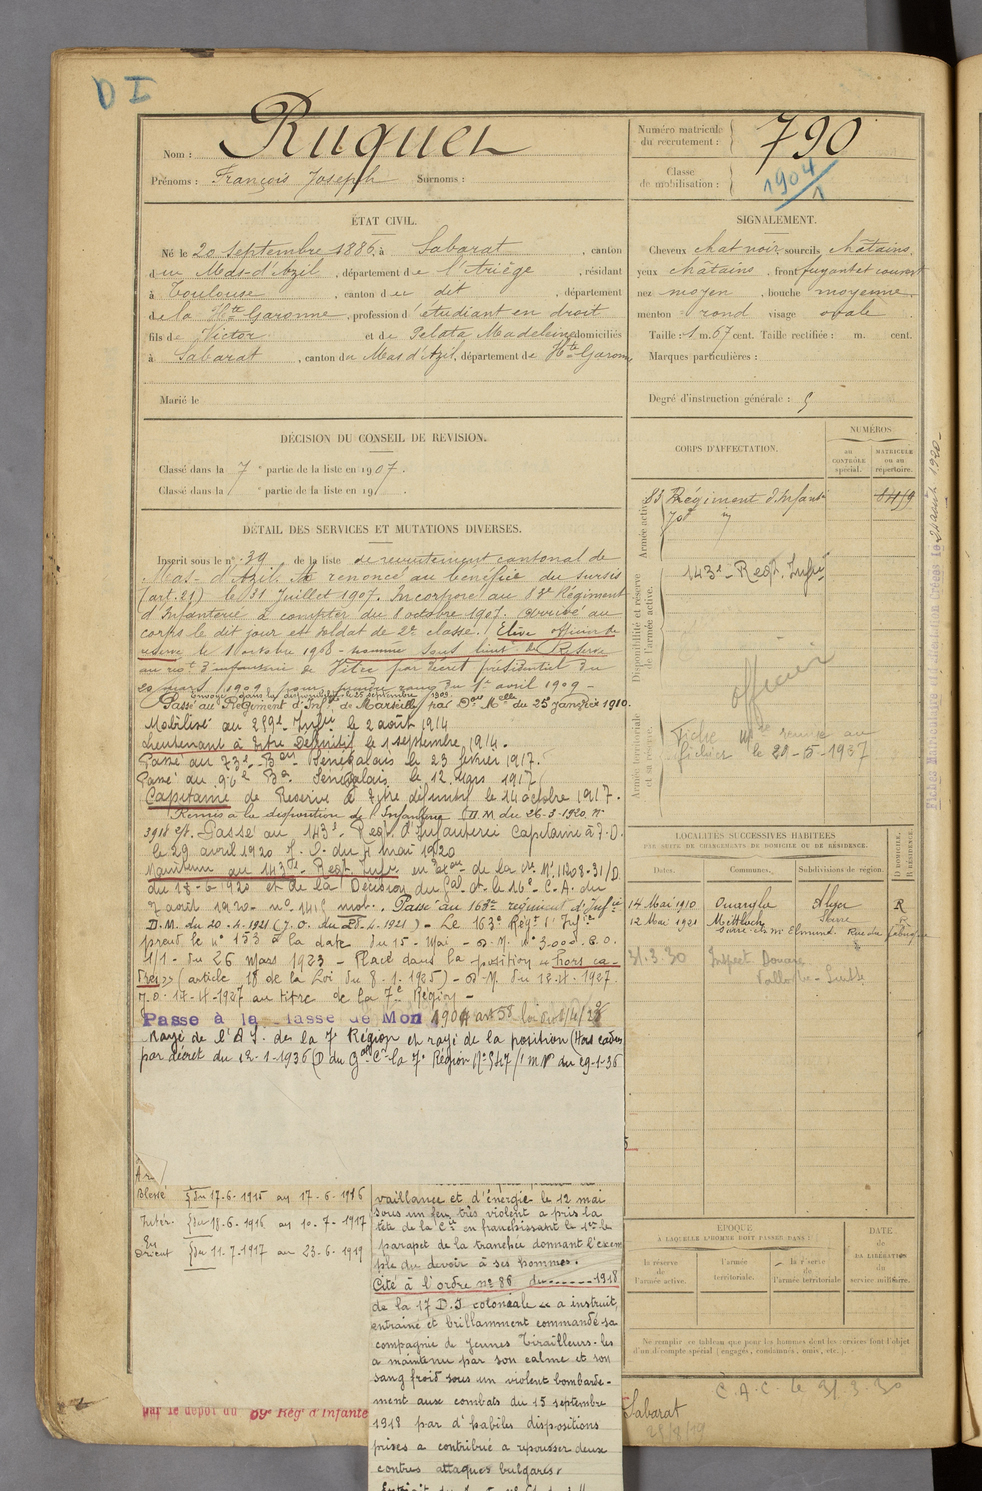 D I
Nom : Ruquet
Prénoms : François Joseph Surnoms :
Numéro matricule
du recrutement : 790
Classe
de mobilisation : 1904/1
ÉTAT CIVIL.
Né le 20 Septembre 1886, à Sabarat , canton
du Mas-d'Azil , département de l'Ariège , résidant
à Toulouse , canton du dit , département
de la Hte Garonne , profession d'étudiant en droit
fils de Victor et de Pelata Madeleine domiciliés
à Sabarat , canton du Mas d'Azil, département de Hte Garonne
Marié le
SIGNALEMENT.
Cheveux chat noir, sourcils châtains,
yeux châtains , front fuyant et couvert
nez moyen , bouche moyenne,
menton rond visage ovale .
Taille : 1 m. 67 cent. Taille rectifiée : m. cent.
Marques particulières :
Degré d'instruction générale : 5
DÉCISION DU CONSEIL DE REVISION.
Classé dans la 7e partie de la liste en 1907.
Classé dans la e partie de la liste en 19 .
CORPS D'AFFECTATION.
NUMÉROS
au
CONTRÔLE
spécial.
MATRICULE
ou au
répertoire.
Armée active.
83 Régiment d'Infant
143e Regt. Infrie
Disponibilité et réserve
de l'armée active.
officier
Armée territoriale
et sa réserve.
Fiche remise au
fichier le 29-5-1937
DÉTAIL DES SERVICES ET MUTATIONS DIVERSES.
Inscrit sous le n° 39 de la liste de recrutement cantonal de
Mas-d'Azil. A renoncé au bénéfice du sursis
(art. 21) le 31 Juillet 1907. Incorporé au 83e Régiment
d'Infanterie à compter du 8 octobre 1907. Arrivé au
corps le dit jour et soldat de 2e classe. Elève officier de
réserve le 1 octobre 1908 - nommé sous lieut de Réserve
au d'infanterie de par décret présidentiel du
20 mars 1909 pour prendre rang du 1er avril 1909 -
envoyé dans la disponibilité le 25 septembre 1909.
Passé au Régiment d'Infie de Marseille par Don Melle du 25 Janvier 1910.
Mobilisé au 259e Infrie le 2 août 1914
Lieutenant à titre Définitif le 1 septembre 1914.
Passé au 73e Bon Sénégalais le 23 février 1917.
Passé au 96e Bon Sénégalais le 12 Mars 1917
Capitaine de Réserve à titre définitif le 14 octobre 1917.
Remis à la disposition de l'Infanterie DM du 26-3-1920 n°
3918 Passé au 143e Regt d'Infanterie Capitaine à T.D.
le 29 avril 1920 J.O. du 4 mai 1920
Maintenu au 143e Regt Infrie en Exon de la Cre Mlle 11208-31/D
du 18-6-1920 et de la Décision du Gal Ct le 16e C.A. du
7 août 1920 - n° 1415 mob. Passé au 163e régiment d'Infie
D.M. du 20-4-1921 (J.O. du 25-4-1921) - Le 163e Régt d'Infie
prend le n° 153 à la date du 15-Mai - D.M. n° 3000.6.0.
1/1 - du 26 mars 1923 - Placé dans la position "hors ca-
dres" (article 18 de la Loi du 8-1-1925) - D.M. du 12-4-1927
J.O. 17-4-1927 au titre de la 7e Région -
Passé à la classe de Mob 1904 art 58 loi du 1/4/28
Rayé de l'A.S. de la 7e Région et rayé de la position (Hors cadres
par décret du 12-1-1936 (D du Gal Ct la 7e Région N° 547/1 MR du 29-1-36
LOCALITÉS SUCCESSIVES HABITÉES
PAR SUITE DE CHANGEMENTS DE DOMICILE OU DE RÉSIDENCE.
Dates. Communes. Subdivisions de région. D DOMICILE. R RÉSIDENCE.
14 Mai 1910 Ouargla Alger R
12 Mai 1921 Mettlach Sarre R
31.3.30 Inspect Douane
Blessé du 17-6-1915 au 17-6-1916
Intér. du 18-6-1916 au 10-7-1917
En
Orient du 11-7-1917 au 23-6-1919
vaillance et d'énergie le 12 mai
sous un feu très violent a pris la
tête de la Cie en franchissant le 1er le
parapet de la tranchée donnant l'exem
ple du devoir à ses hommes.
Cité à l'ordre n° 86 du ...... 1918
de la 17 D.I coloniale " a instruit,
entraîné et brillamment commandé sa
compagnie de jeunes Tirailleurs - les
a maintenu par son calme et son
sang froid sous un violent bombarde-
ment aux combats du 15 septembre
1918 par d'habiles dispositions
prises a contribué a repousser deux
contres attaques bulgares.
ÉPOQUE
À LAQUELLE L'HOMME DOIT PASSER DANS :
la réserve
de
l'armée active.
l'armée
territoriale.
la réserve
de
l'armée territoriale
DATE
de
LA LIBÉRATION
du
service militaire.
Ne remplir ce tableau que pour les hommes dont les services font l'objet
d'un décompte spécial (engagés, condamnés, omis, etc.).
C.A.C. le 31.3.30
par le dépôt du 59e Régt d'Infante
Sabarat
28/8/19